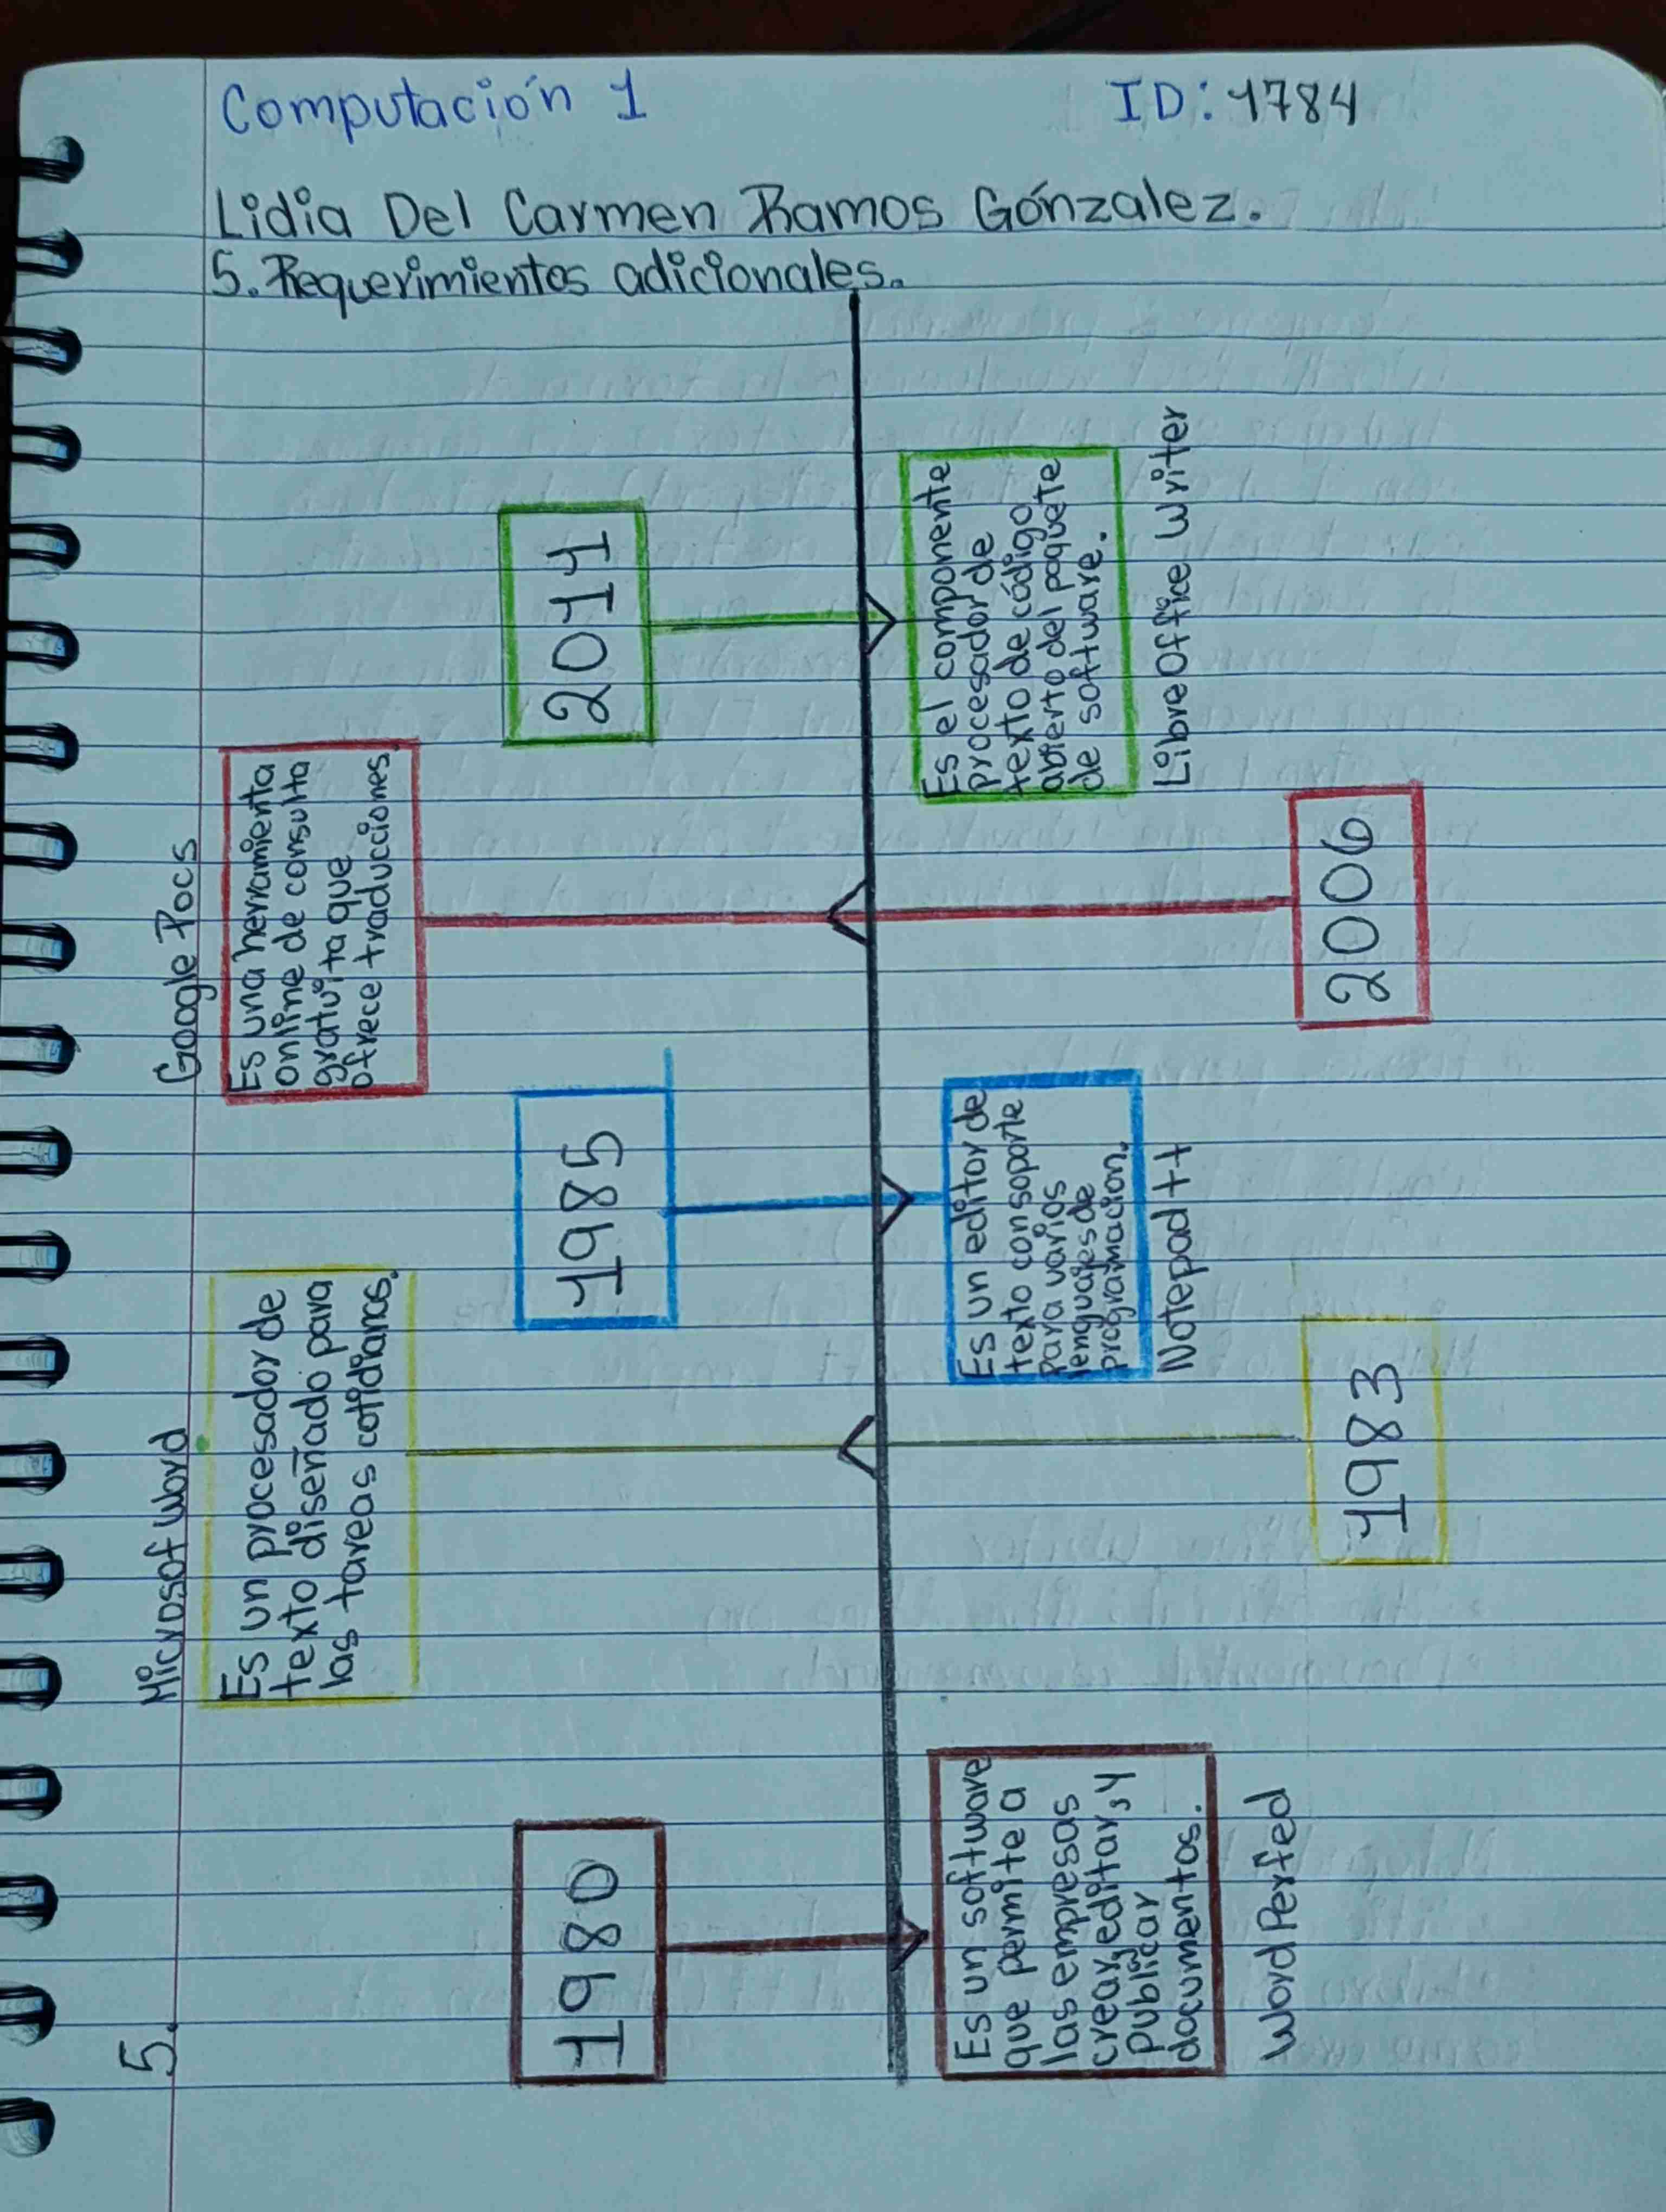 Computación 1 ID: 1784
Lidia Del Carmen Ramos Gónzalez.
5. Requerimientos adicionales.
5.
1980
Es un software
que permite a
las empresas
crear, editar, y
publicar
documentos.
WordPerfed
Microsof Word
Es un procesador de
texto diseñado para
las tareas cotidianas.
1983
1985
Es un editor de
texto con soporte
para varios
lenguajes de
programacion.
Notepad ++
Google Pocs
Es una herramienta
online de consulta
gratuita que
ofrece traducciones.
2006
2011
Es el componente
procesador de
texto de código
abierto del paquete
de software.
LibreOffice Writer